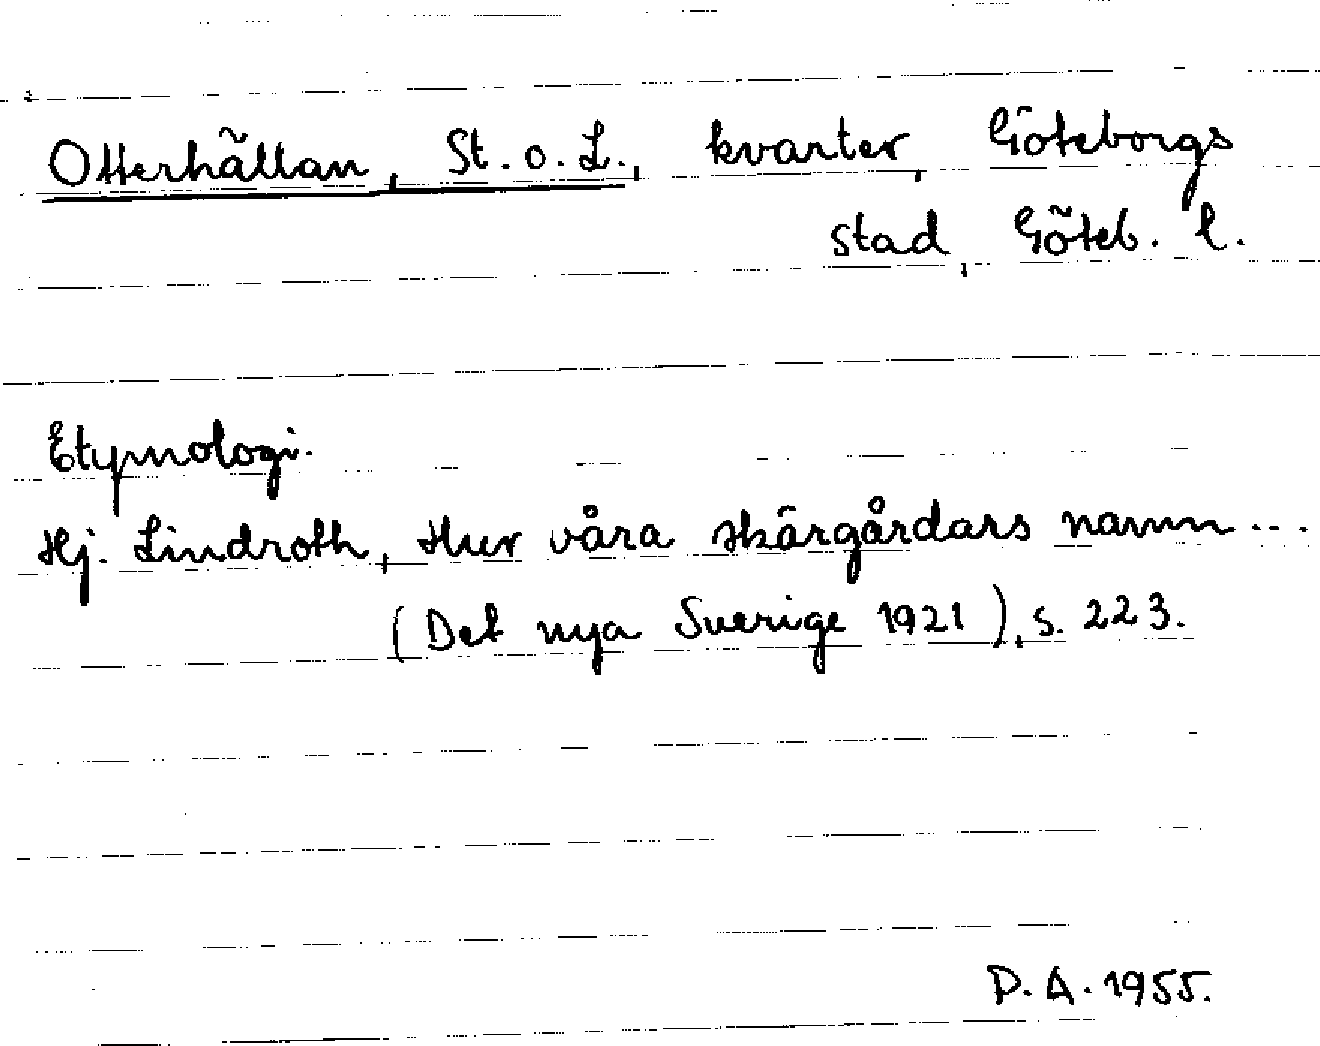 Otterhällan, St. o. L., kvarter, Göteborgs
stad, Göteb. l.
Etymologi.
Hj. Lindroth, Hur våra skärgårdars namn...
(Det nya Sverige 1921), s. 223.
P. A. 1955.